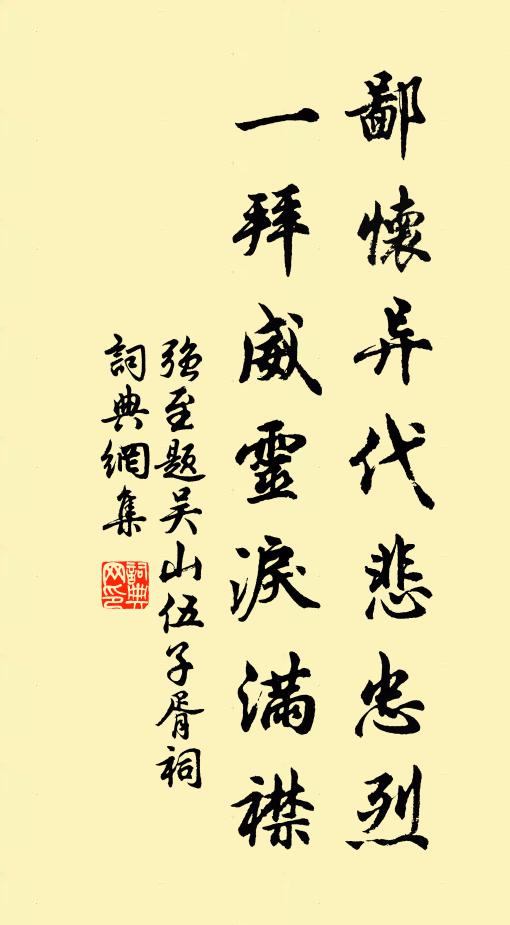 鄙懷异代悲忠烈
一拜威靈淚滿襟
強至題吴山伍子胥祠
詞典網集
詞典网印